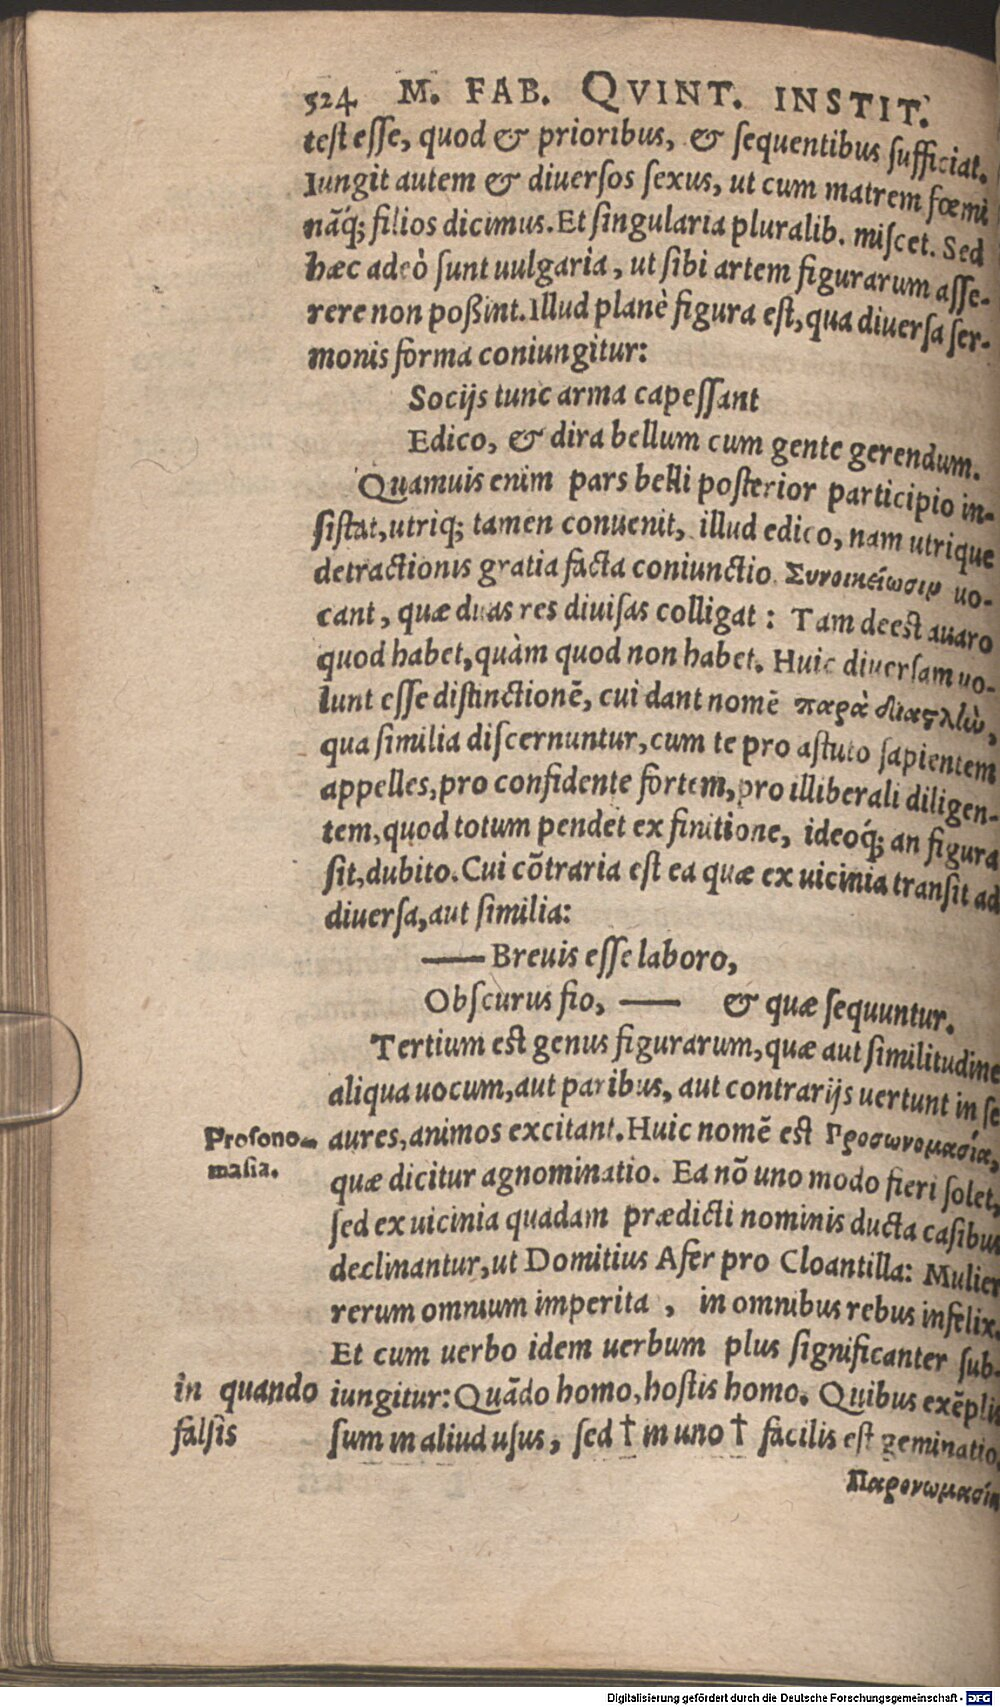 524 M. FAB. QVINT. INSTIT.
test esse, quod & prioribus, & sequentibus sufficiat.
Iungit autem & diuersos sexus, ut cum matrem fœmi
nãq́; filios dicimus. Et singularia pluralib. miscet. Sed
hæc adeò sunt uulgaria, ut sibi artem figurarum asse-
rere non poßint. Illud planè figura est, qua diuersa ser-
monis forma coniungitur:
Socijs tunc arma capessant
Edico, & dira bellum cum gente gerendum.
Quamuis enim pars belli posterior participio in-
sistat, utriq; tamen conuenit, illud edico, nam utrique
detractionis gratia facta coniunctio. Συνοικείωσιν uo-
cant, quæ duas res diuisas colligat: Tam deest auaro
quod habet, quàm quod non habet. Huic diuersam uo-
lunt esse distinctionẽ, cui dant nomẽ παρὰ διαστολὼ,
qua similia discernuntur, cum te pro astuto sapientem
appelles, pro confidente fortem, pro illiberali diligen-
tem, quod totum pendet ex finitione, ideoq́; an figura
sit, dubito. Cui cõtraria est ea quæ ex uicinia transit ad
diuersa, aut similia:
—— Breuis esse laboro,
Obscurus fio, —— & quæ sequuntur.
Tertium est genus figurarum, quæ aut similitudine
aliqua uocum, aut paribus, aut contrarijs uertunt in se
Prosono- aures, animos excitant. Huic nomẽ est Προσωνομασία,
masia. quæ dicitur agnominatio. Ea nõ uno modo fieri solet,
sed ex uicinia quadam prædicti nominis ducta casibus
declinantur, ut Domitius Afer pro Cloantilla: Mulier
rerum omnium imperita, in omnibus rebus infelix.
Et cum uerbo idem uerbum plus significanter sub-
in quando iungitur: Quãdo homo, hostis homo. Quibus exẽplis
falsis sum in aliud usus, sed † in uno † facilis est geminatio.
Παρονωμασία
Digitalisierung gefördert durch die Deutsche Forschungsgemeinschaft - DFG